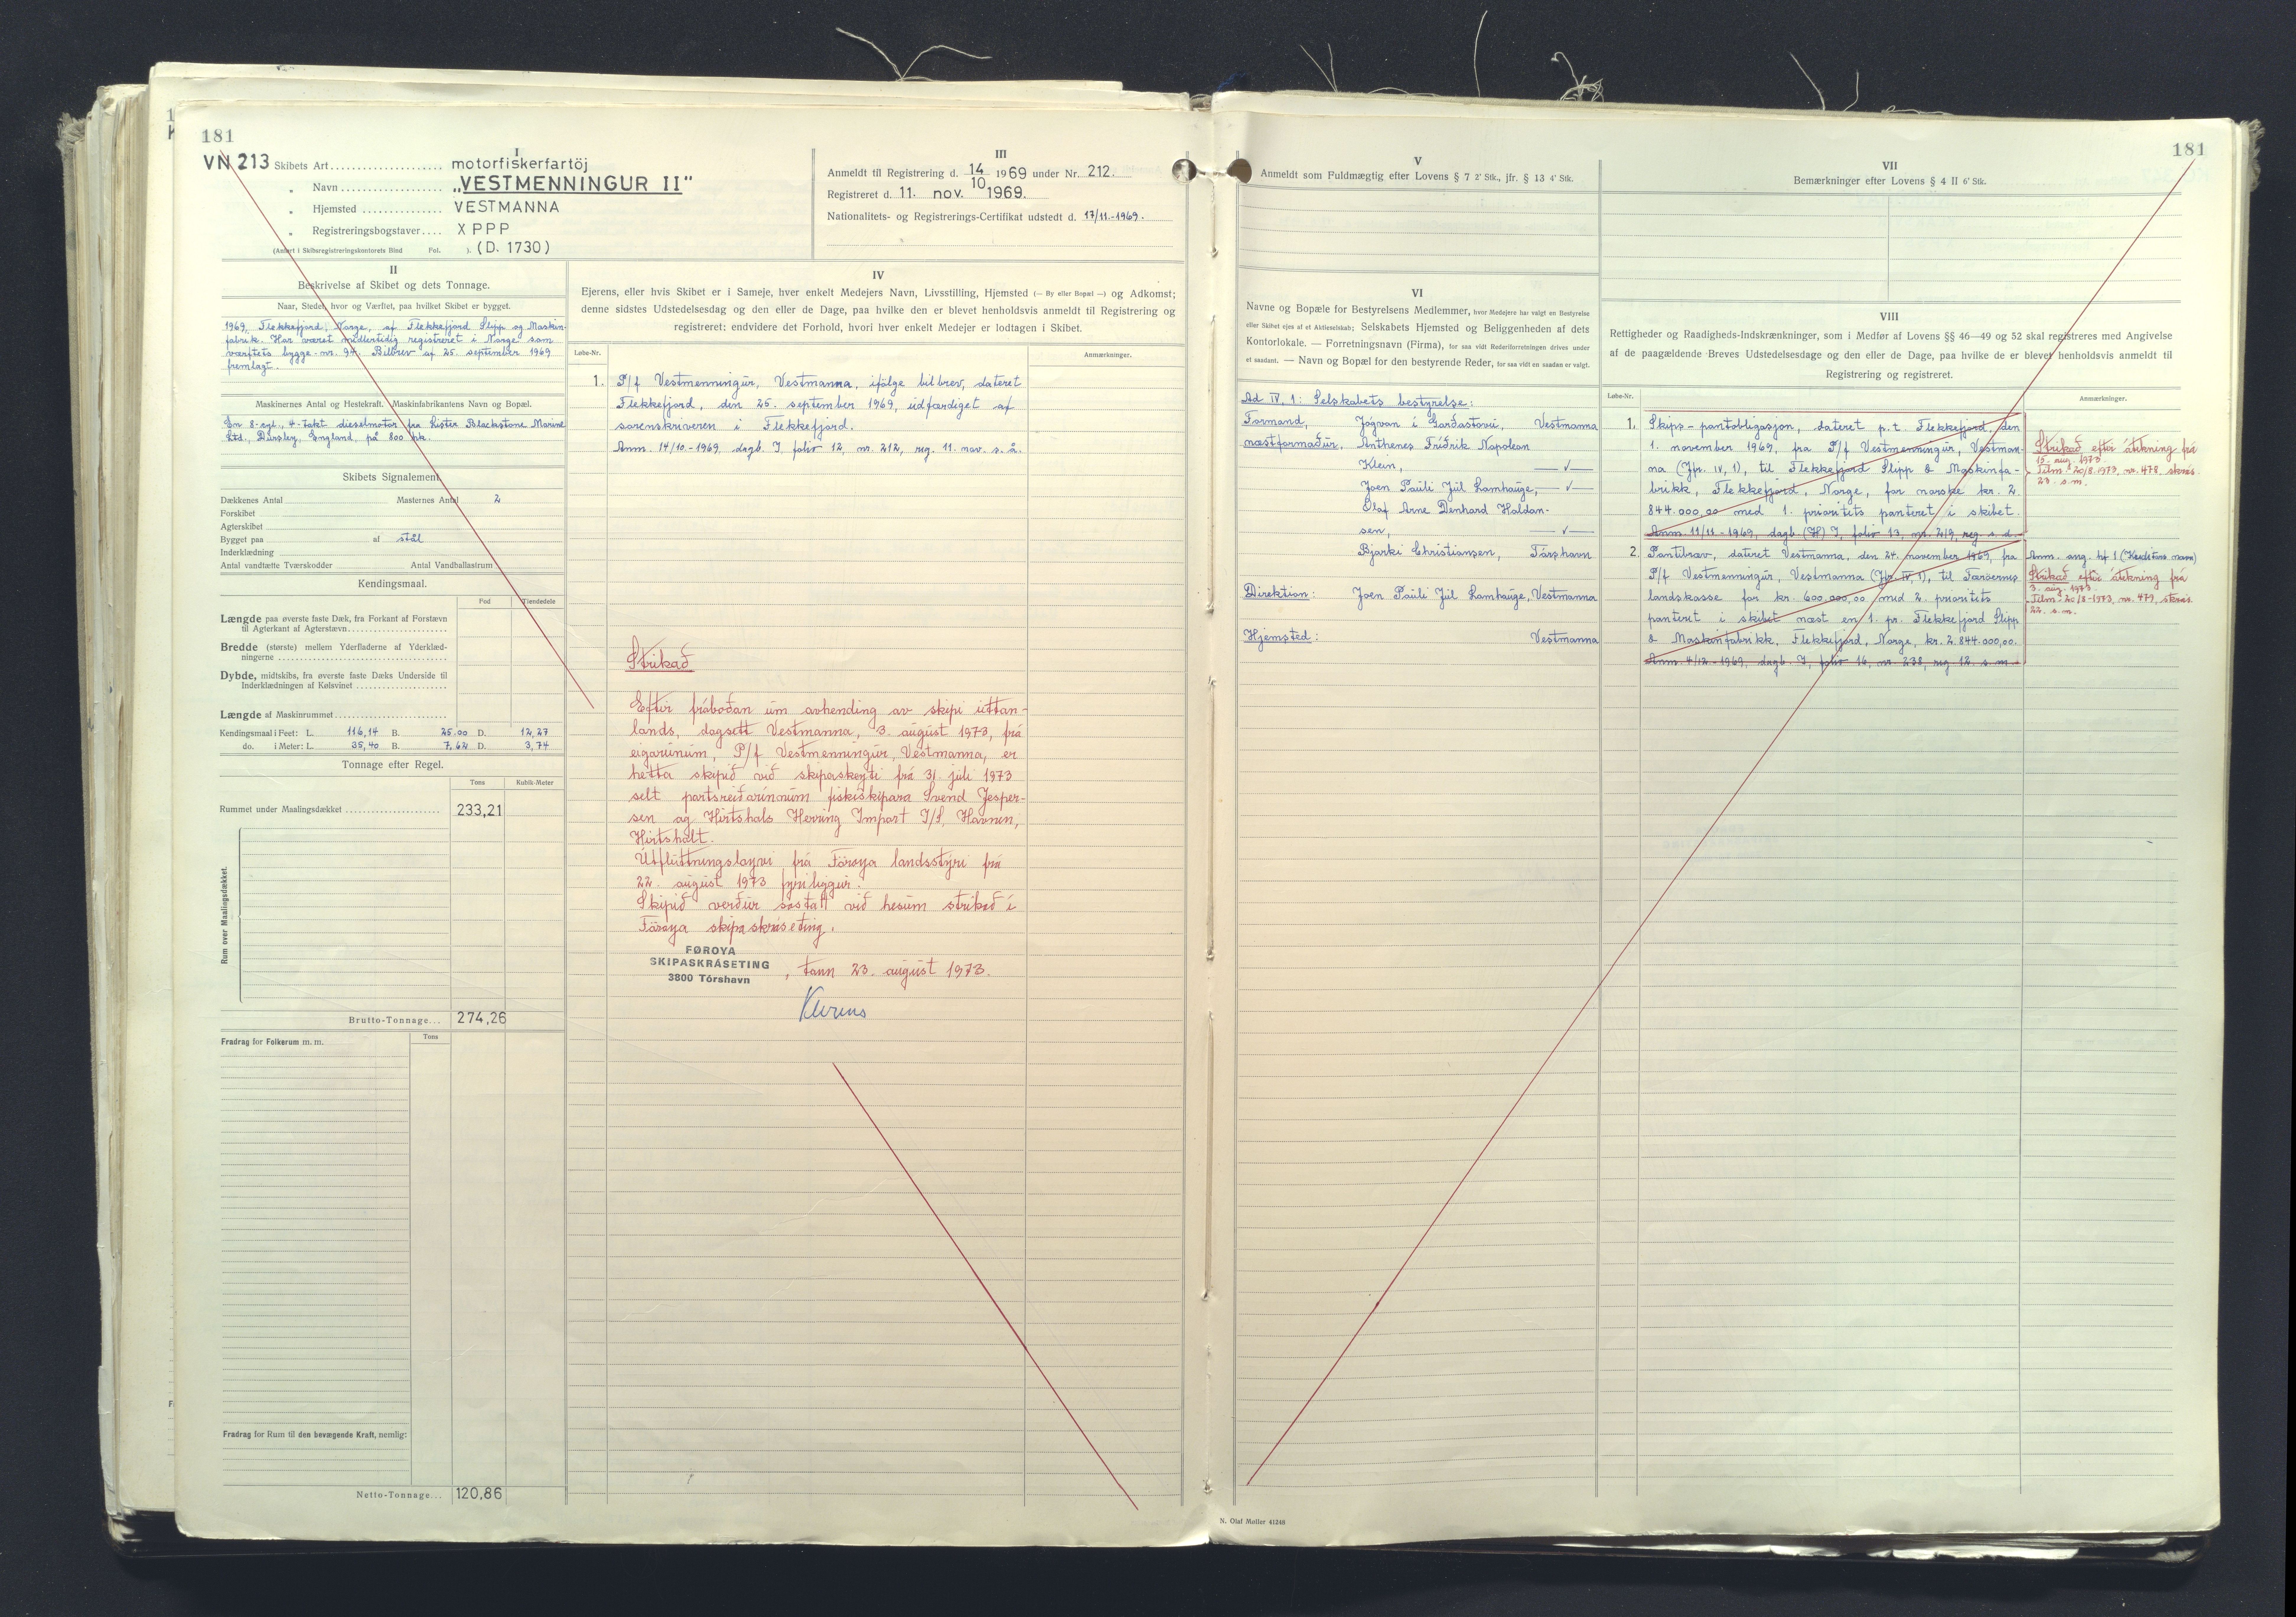 181
VN 213 Skibets Art motorfiskerfartöj
I
„ Navn „VESTMENNINGUR II"
„ Hjemsted VESTMANNA
„ Registreringsbogstaver XPPP
(Anført i Skibsregistreringskontorets Bind Fol. ). (D. 1730)
III
Anmeldt til Registrering d. 14/10 1969 under Nr. 212.
Registreret d. 11. nov. 1969.
Nationalitets- og Registrerings-Certifikat udstedt d. 17/11.-1969.
II
Beskrivelse af Skibet og dets Tonnage.
Naar, Stedet, hvor og Værftet, paa hvilket Skibet er bygget.
1969, Flekkefjord, Norge, af Flekkefjord Slipp og Maskin-
fabrik. Har været midlertidig registreret i Norge som
værftets bygge-nr. 94. Bilbrev af 25. september 1969
fremlagt.
Maskinernes Antal og Hestekraft. Maskinfabrikantens Navn og Bopæl.
En 8-cyl., 4-takt dieselmotor fra Lister Blackstone Marine
Ltd., Dursley, England, på 800 hk.
Skibets Signalement
Dækkenes Antal Masternes Antal 2
Forskibet
Agterskibet
Bygget paa af stål
Inderklædning
Antal vandtætte Tværskodder Antal Vandballastrum
Kendingsmaal.
Fod Tiendedele
Længde paa øverste faste Dæk, fra Forkant af Forstævn
til Agterkant af Agterstævn
Bredde (største) mellem Yderfladerne af Yderklæd-
ningerne
Dybde, midtskibs, fra øverste faste Dæks Underside til
Inderklædningen af Kølsvinet
Længde af Maskinrummet
Kendingsmaal i Feet: L. 116,14 B. 25.00 D. 12,27
do. i Meter: L. 35,40 B. 7,62 D. 3,74
Tonnage efter Regel.
Tons Kubik-Meter
Rummet under Maalingsdækket 233,21
Rum over Maalingsdækket.
Brutto-Tonnage... 274,26
Fradrag for Folkerum m. m. Tons
Fradrag for Rum til den bevægende Kraft, nemlig:
Netto-Tonnage... 120,86
IV
Ejerens, eller hvis Skibet er i Sameje, hver enkelt Medejers Navn, Livsstilling, Hjemsted (— By eller Bopæl —) og Adkomst;
denne sidstes Udstedelsesdag og den eller de Dage, paa hvilke den er blevet henholdsvis anmeldt til Registrering og
registreret; endvidere det Forhold, hvori hver enkelt Medejer er lodtagen i Skibet.
Løbe-Nr. Anmærkninger.
1. P/f Vestmenningur, Vestmanna, ifölge bilbrev, dateret
Flekkefjord, den 25. september 1969, udfærdiget af
sorenskriveren i Flekkefjord.
Anm. 14/10-1969, dagb. I, folio 12, nr. 212, reg. 11. nov. s. å.
Strikað
Eftir fráboðan um avhending av skipi uttan-
lands, dagsett Vestmanna, 3. august 1973, frá
eigarunum, P/f Vestmenningur, Vestmanna, er
hetta skipið við skipaskeyti frá 31. juli 1973
selt partsreiðarínum fiskiskipara Svend Jesper-
sen og Hirtshals Herring Import I/S, Havnen,
Hirtshalt.
Útflutningsloyvi frá Føroya landsstýri frá
22. august 1973 fyriliggur.
Skipið verður sostatt við hesum strikað í
Føroya skipaskráseting.
FØROYA
SKIPASKRÁSETING
3800 Tórshavn
, tann 23. august 1973.
181
V
Anmeldt som Fuldmægtig efter Lovens § 7 2' Stk., jfr. § 13 4' Stk.
VI
Navne og Bopæle for Bestyrelsens Medlemmer, hvor Medejere har valgt en Bestyrelse
eller Skibet ejes af et Aktieselskab; Selskabets Hjemsted og Beliggenheden af dets
Kontorlokale. — Forretningsnavn (Firma), for saa vidt Rederiforretningen drives under
et saadant. — Navn og Bopæl for den bestyrende Reder, for saa vidt en saadan er valgt.
Ad IV, 1: Selskabets bestyrelse:
Formand, Jógvan í Garðastovu, Vestmanna
næstformaður, Anthenes Fríðrik Napoleon
Klein, —✓—
Joen Pauli Júl Lamhauge, —✓—
Olaf Arne Denhard Haldan-
sen, —✓—
Bjarki Christiansen, Tórshavn
Direktion: Joen Pauli Júl Lamhauge, Vestmanna
Hjemsted: Vestmanna
VII
Bemærkninger efter Lovens § 4 II 6' Stk.
VIII
Rettigheder og Raadigheds-Indskrænkninger, som i Medfør af Lovens §§ 46—49 og 52 skal registreres med Angivelse
af de paagældende Breves Udstedelsesdage og den eller de Dage, paa hvilke de er blevet henholdsvis anmeldt til
Registrering og registreret.
Løbe-Nr. Anmærkninger.
1. Skips-pantobligasjon, dateret p.t. Flekkefjord, den
1. november 1969, fra P/f Vestmenningur, Vestman-
na (Jfr. IV, 1), til Flekkefjord Slipp & Maskinfa-
brikk, Flekkefjord, Norge, for norske kr. 2.
844.000,00 med 1. prioritets panteret i skibet.
Anm. 11/11-1969, dagb. (H) I, folio 13, nr. 219, reg. s. d.
Strikað eftir átekning frá
15. aug. 1973.
Tilm. 20/8.1973, nr. 478, skrás.
23. s.m.
2. Pantibrøv, dateret Vestmanna, den 24. november 1969, fra
P/f Vestmenningur, Vestmanna (Jfr. IV, 1), til Færöernes
landskasse for kr. 600.000,00 med 2. prioritets
panteret i skibet næst en 1. pr. Flekkefjord Slipp
& Maskinfabrikk, Flekkefjord, Norge, kr. 2.844.000,00.
Anm. 4/12-1969, dagb. I, folio 16, nr. 238, reg. 12. s. m.
Anm. ang. hf 1 (Kreditors navn)
Strikað eftir átekning frá
3. aug. 1973.
Tilm. 20/8-1973, nr. 479, skrás.
22. s.m.
N. Olaf Møller 41248